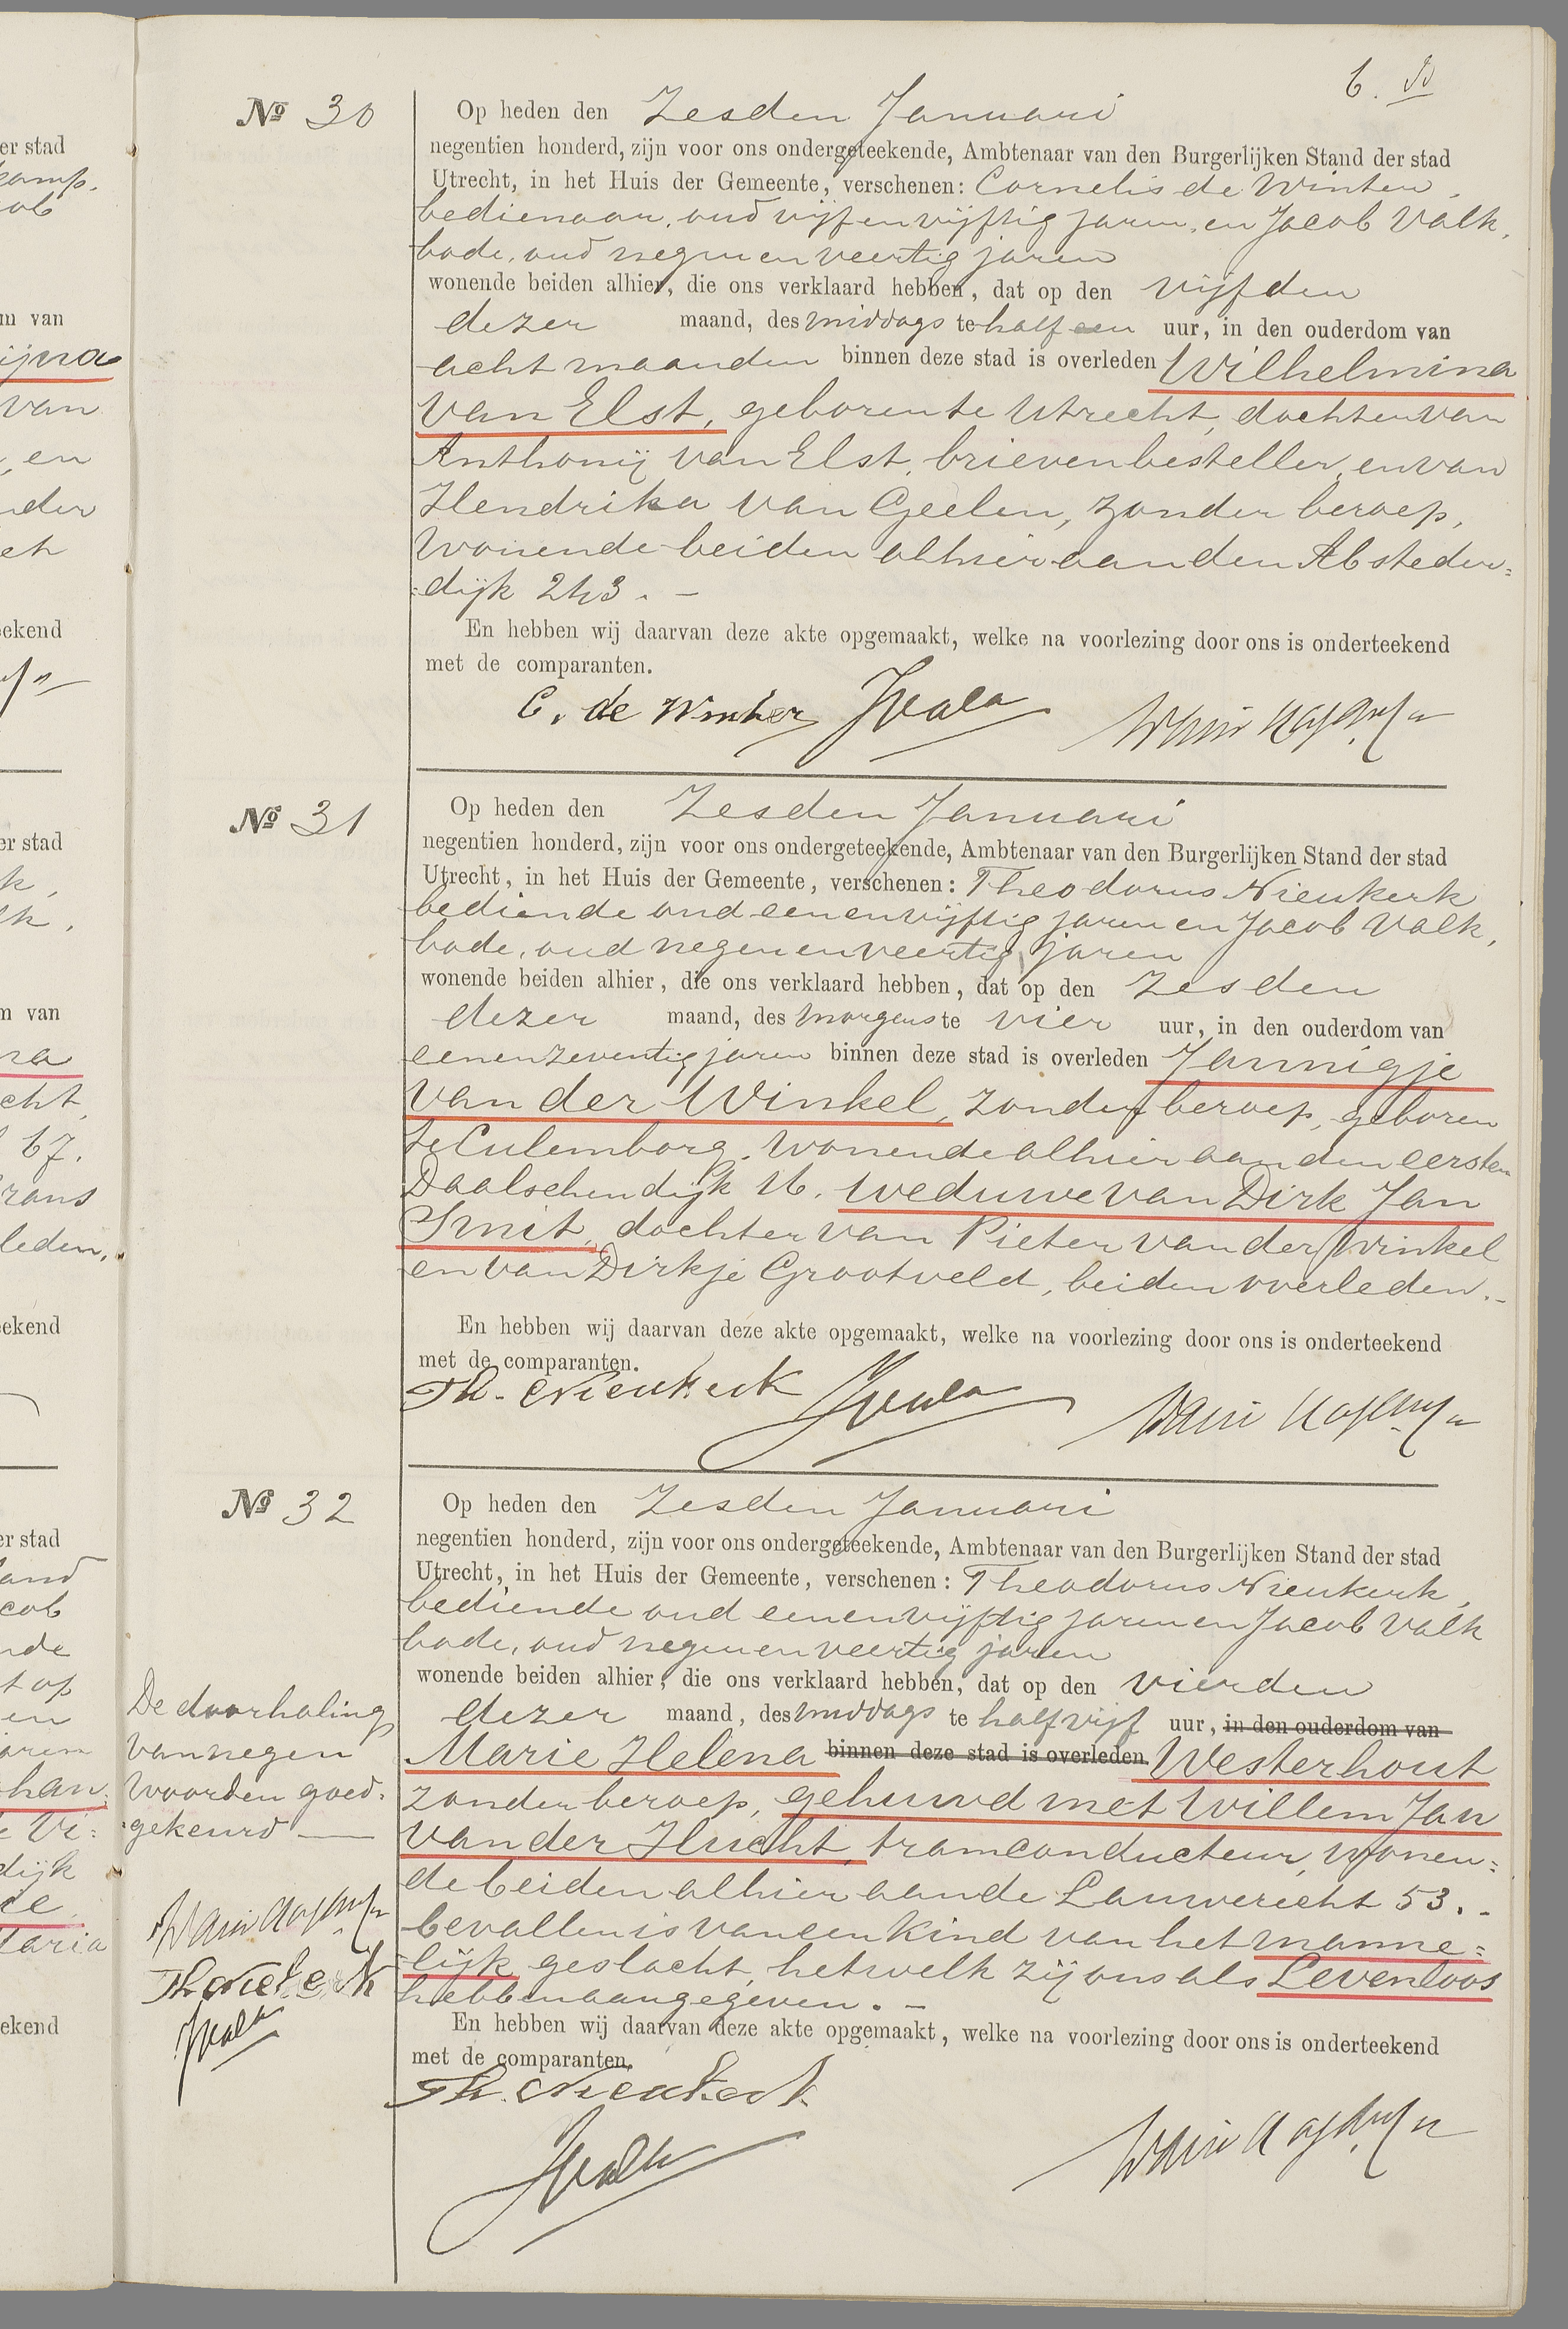 6.
Nº 30
Op heden den Zesden Januari
negentien honderd, zijn voor ons ondergeteekende, Ambtenaar van den Burgerlijken Stand der stad
Utrecht, in het Huis der Gemeente, verschenen: Cornelis de Winter,
bedienaar, oud vijfenvijftig jaren, en Jacob Valk,
bode, oud negenenveertig jaren
wonende beiden alhier, die ons verklaard hebben, dat op den vijfden
dezer maand, des middags te half een uur, in den ouderdom van
acht maanden binnen deze stad is overleden Wilhelmina
van Elst, geboren te Utrecht, dochter van
Anthonij van Elst, brievenbesteller, en van
Hendrika van Geelen, zonder beroep,
wonende beiden alhier aan den Absteder=
=dijk 243. -
En hebben wij daarvan deze akte opgemaakt, welke na voorlezing door ons is onderteekend
met de comparanten.
C. de Winter JValk
Nº 31
Op heden den Zesden Januari
negentien honderd, zijn voor ons ondergeteekende, Ambtenaar van den Burgerlijken Stand der stad
Utrecht, in het Huis der Gemeente, verschenen: Theodorus Nieukerk
bediende oud eenenvijftig jaren en Jacob Valk,
bode, oud negenenveertig jaren
wonende beiden alhier, die ons verklaard hebben, dat op den Zesden
dezer maand, des morgens te vier uur, in den ouderdom van
eenenzeventig jaren binnen deze stad is overleden Jannigje
van der Winkel, zonder beroep, geboren
te Culemborg, wonende alhier aan den eersten
Daalschendijk 16, weduwe van Dirk Jan
Smit, dochter van Pieter van der Winkel
en van Dirkje Grootveld, beiden overleden. -
En hebben wij daarvan deze akte opgemaakt, welke na voorlezing door ons is onderteekend
met de comparanten.
Th. Nieukerk JValk
Nº 32
Op heden den Zesden Januari
negentien honderd, zijn voor ons ondergeteekende, Ambtenaar van den Burgerlijken Stand der stad
Utrecht, in het Huis der Gemeente, verschenen: Theodorus Nieukerk,
bediende oud eenenvijftig jaren en Jacob Valk
bode, oud negenenveertig jaren
wonende beiden alhier, die ons verklaard hebben, dat op den vierden
dezer maand, des middags te half vijf uur, in den ouderdom van
Marie Helena binnen deze stad is overleden Westerhout
zonder beroep, gehuwd met Willem Jan
van der Hucht, tramconducteur, wonen=
de beiden alhier aan de Lauwerecht 53. -
bevallen is van een kind van het manne=
=lijk geslacht, hetwelk zij ons als Levenloos
hebben aangegeven. -
En hebben wij daarvan deze akte opgemaakt, welke na voorlezing door ons is onderteekend
met de comparanten.
Th. Nieukerk
JValk
De doorhaling
van negen
woorden goed=
=gekeurd
Th Nieukerk
JValk
er stad
kamp,
cob
m van
ijna
van
, en
nder
ch
eekend
er stad
k,
lk,
m van
na
cht,
67.
rans
leden.
eekend
er stad
and
cob
nde
t op
en
aren
han
e Vi=
dijk
ce
taria
eekend